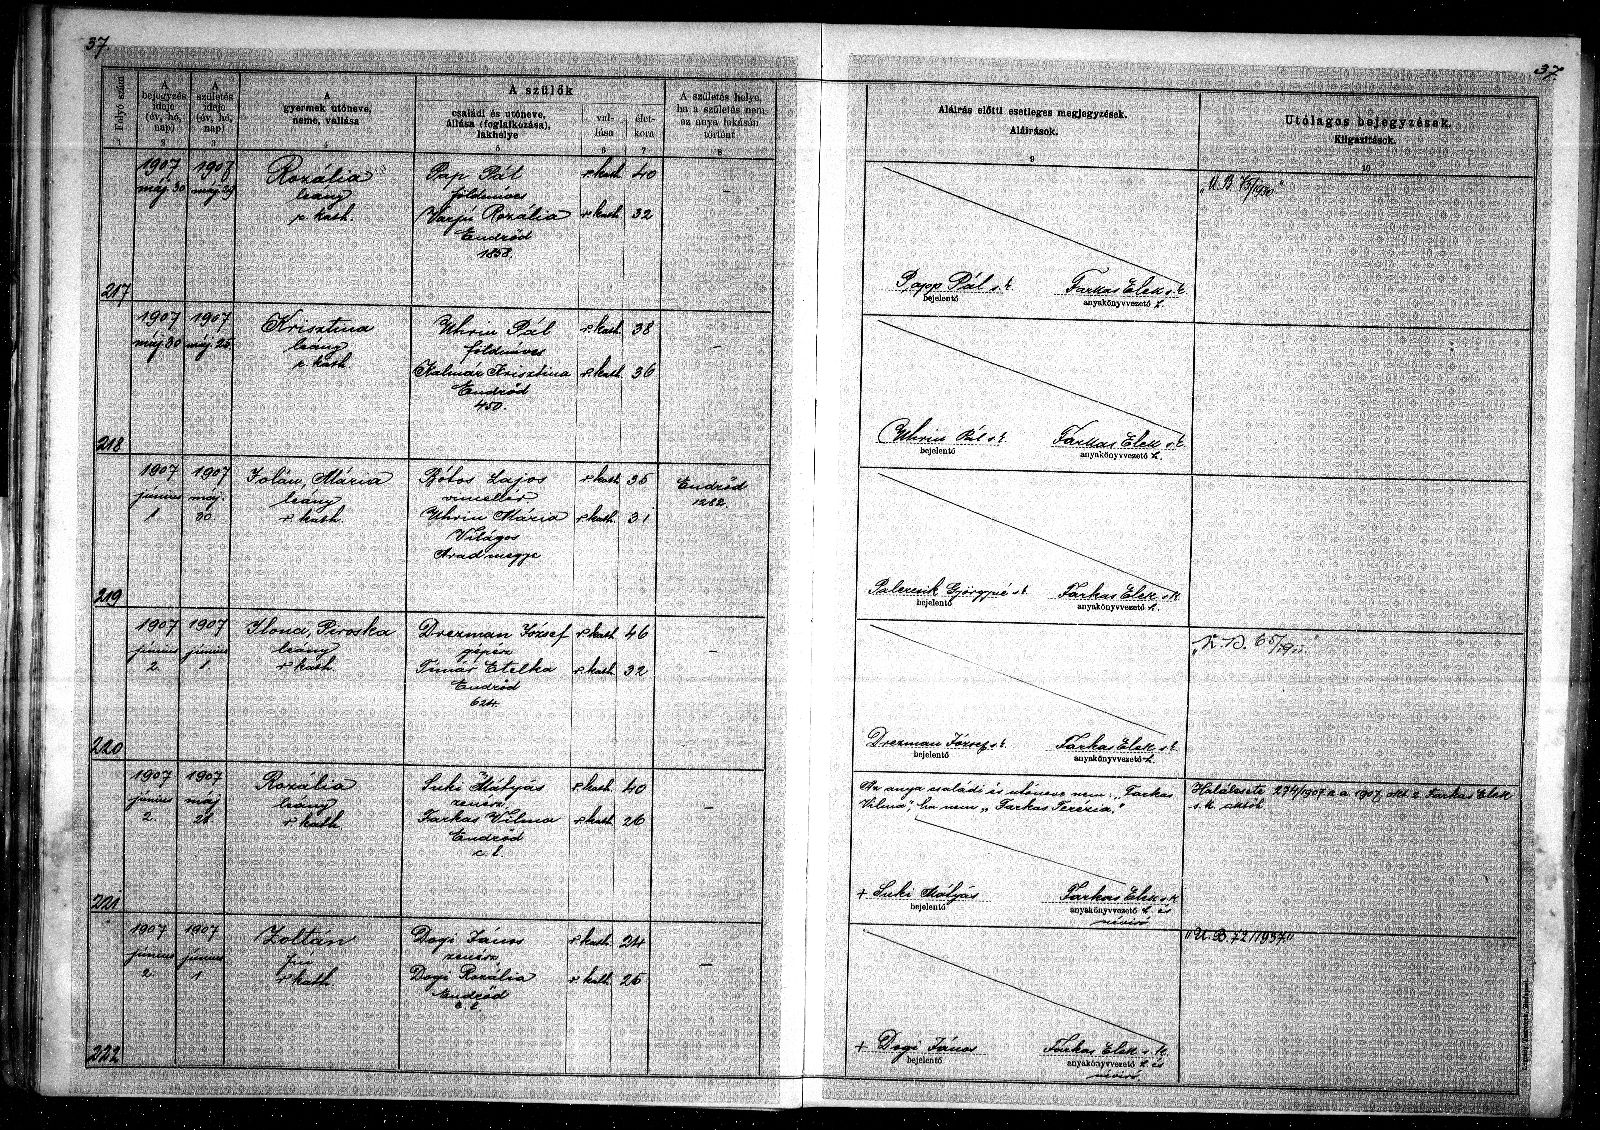 37
37.
Folyó szám
A bejegyzés ideje (év, hó, nap)
A születés ideje (év, hó, nap)
A gyermek utóneve, neme, vallása
A szülők
családi és utóneve, állása (foglalkozása), lakhelye
vallása
életkora
A születés helye, ha a születés nem az anya lakásán történt
Aláírás előtti esetleges megjegyzések.
Aláírások.
Utólagos bejegyzések.
Kiigazítások.
1 2 3 4 5 6 7 8 9 10
217
1907 máj 30
1907 máj 29
Rozália
leány
r. kath.
Pap Pál
földmüves
r. kath. 40
Varjú Rozália
r. kath. 32
Endrőd
1858.
–
Papp Pál s. k.
bejelentő
Farkas Elek s. k.
anyakönyvvezető h.
218
1907 máj 30
1907 máj 25
Krisztina
leány
r. kath.
Uhrin Pál
földmüves
r. kath. 38
Kalmár Krisztina
r. kath. 36
Endrőd
450.
–
Uhrin Pál s. k.
bejelentő
Farkas Elek s. k.
anyakönyvvezető h.
219
1907 június 1
1907 máj. 30
Jolán, Mária
leány
r. kath.
Bótos Lajos
r. kath. 35
Uhrin Mária
r. kath. 31
Világos
Arad megye
Endrőd
1282.
Györgyné s. k.
bejelentő
Farkas Elek s. k.
anyakönyvvezető h.
220
1907 június 2.
1907 június 1
Ilona, Piroska
leány
r. kath.
Drezman József
gépész
r. kath. 46
Timár Etelka
r. kath. 32
Endrőd
624.
–
Drezman József s. k.
bejelentő
Farkas Elek s. k.
anyakönyvvezető h.
221
1907 június 2.
1907 máj 28
Rozália
leány
r. kath.
Suki Mátyás
zenész
r. kath. 40
Farkas Vilma
r. kath. 26
Endrőd
c. t.
Az anya családi és utóneve nem „Farkas
Vilma", hanem „Farkas Teréria."
Halálesete 274/1907 a. a 1907 okt 2 Farkas Elek
s. k. aktól
+ Suki Mátyás
bejelentő
Farkas Elek s. k.
anyakönyvvezető h. és
névíró
222
1907 június 2
1907 június 1
Zoltán
fiú
r. kath.
Dogi János
zenész
r. kath. 24
Dogi Rozália
r. kath. 25
Endrőd
c. t.
–
„U. B. 72/1937."
+ Dogi János
bejelentő
Farkas Elek s. k.
anyakönyvvezető h. és
névíró